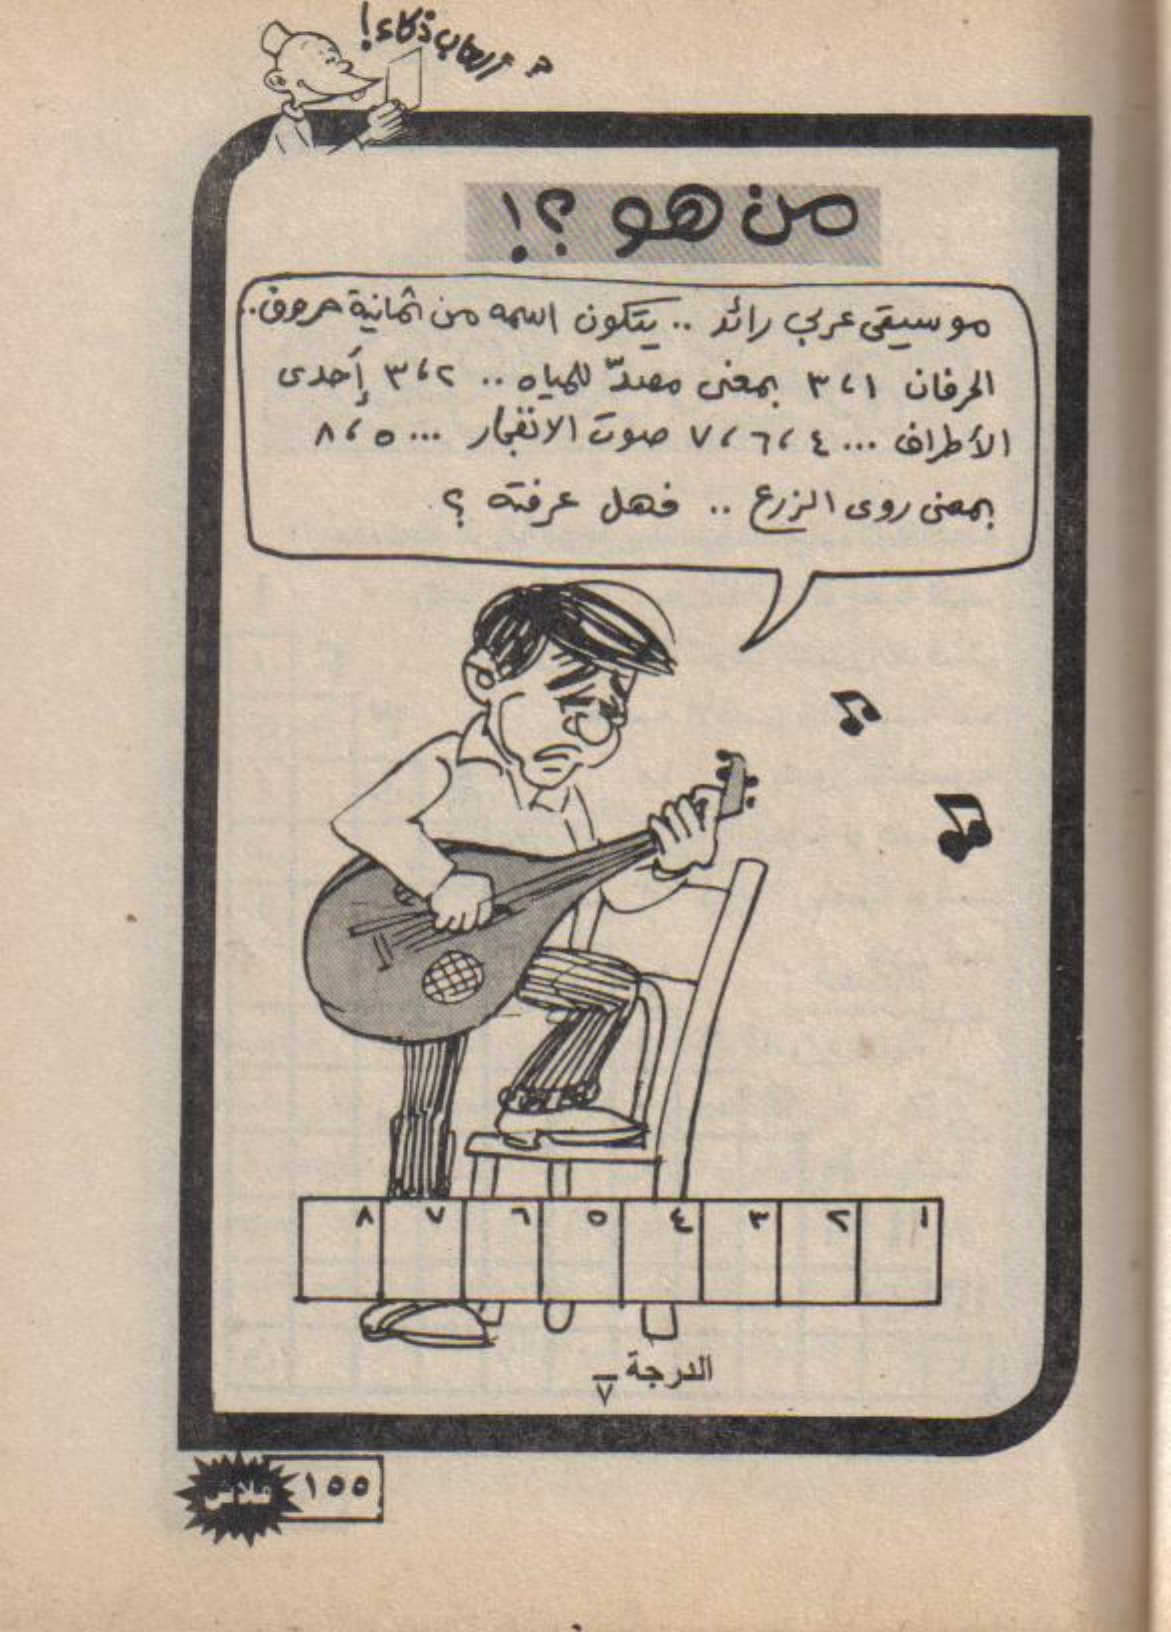 ألعاب ذكاء!
من هو ؟!
موسيقى عربى رائد .. يتكون اسمه من ثمانية حروف..
الحرفان ١، ٣ بمعنى مصدّ للمياه .. ٢، ٣ إحدى
الأطراف ... ٤، ٦، ٧ صوت الانفجار ... ٥، ٨
بمعنى روى الزرع .. فهل عرفته ؟
١ ٢ ٣ ٤ ٥ ٦ ٧ ٨
الدرجة ٧
١٥٥ فلاش